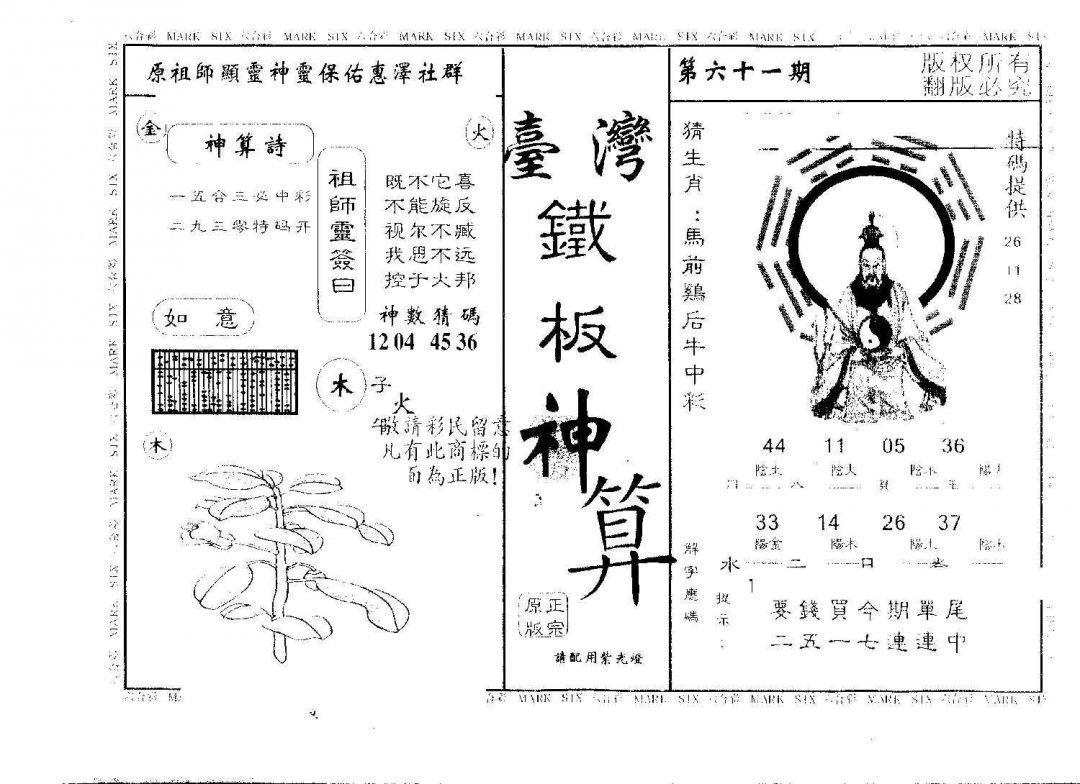 六合彩 MARK SIX 六合彩 MARK SIX 六合彩 MARK SIX 六合彩 MARK SIX 六合彩 MARK SIX 六合彩 MARK SIX
原祖師顯靈神靈保佑惠澤社群
金
神算詩
一五合三必中彩
二九三零特码开
火
祖師靈簽曰
既不它喜
不能旋反
视尔不臧
我思不远
控于火邦
神數猜碼
12 04 45 36
如意
木
子
火
敬請彩民留意
凡有此商標的
為正版!
木
臺灣
鐵
板
神
算
正宗
原版
請配用紫光燈
第六十一期
版权所有
翻版必究
猜生肖：馬前鷄后牛中彩
特碼提供
26
11
28
44 11 05 36
陰土 陰火 陰木
33 14 26 37
陽金 陽木 陽土 陰木
解字應碼
水 二 日
提示：
要錢買今期單尾
二五一七連連中
六合彩 MARK SIX 六合彩 MARK SIX 六合彩 MARK SIX 六合彩 MARK SIX 六合彩 MARK SIX